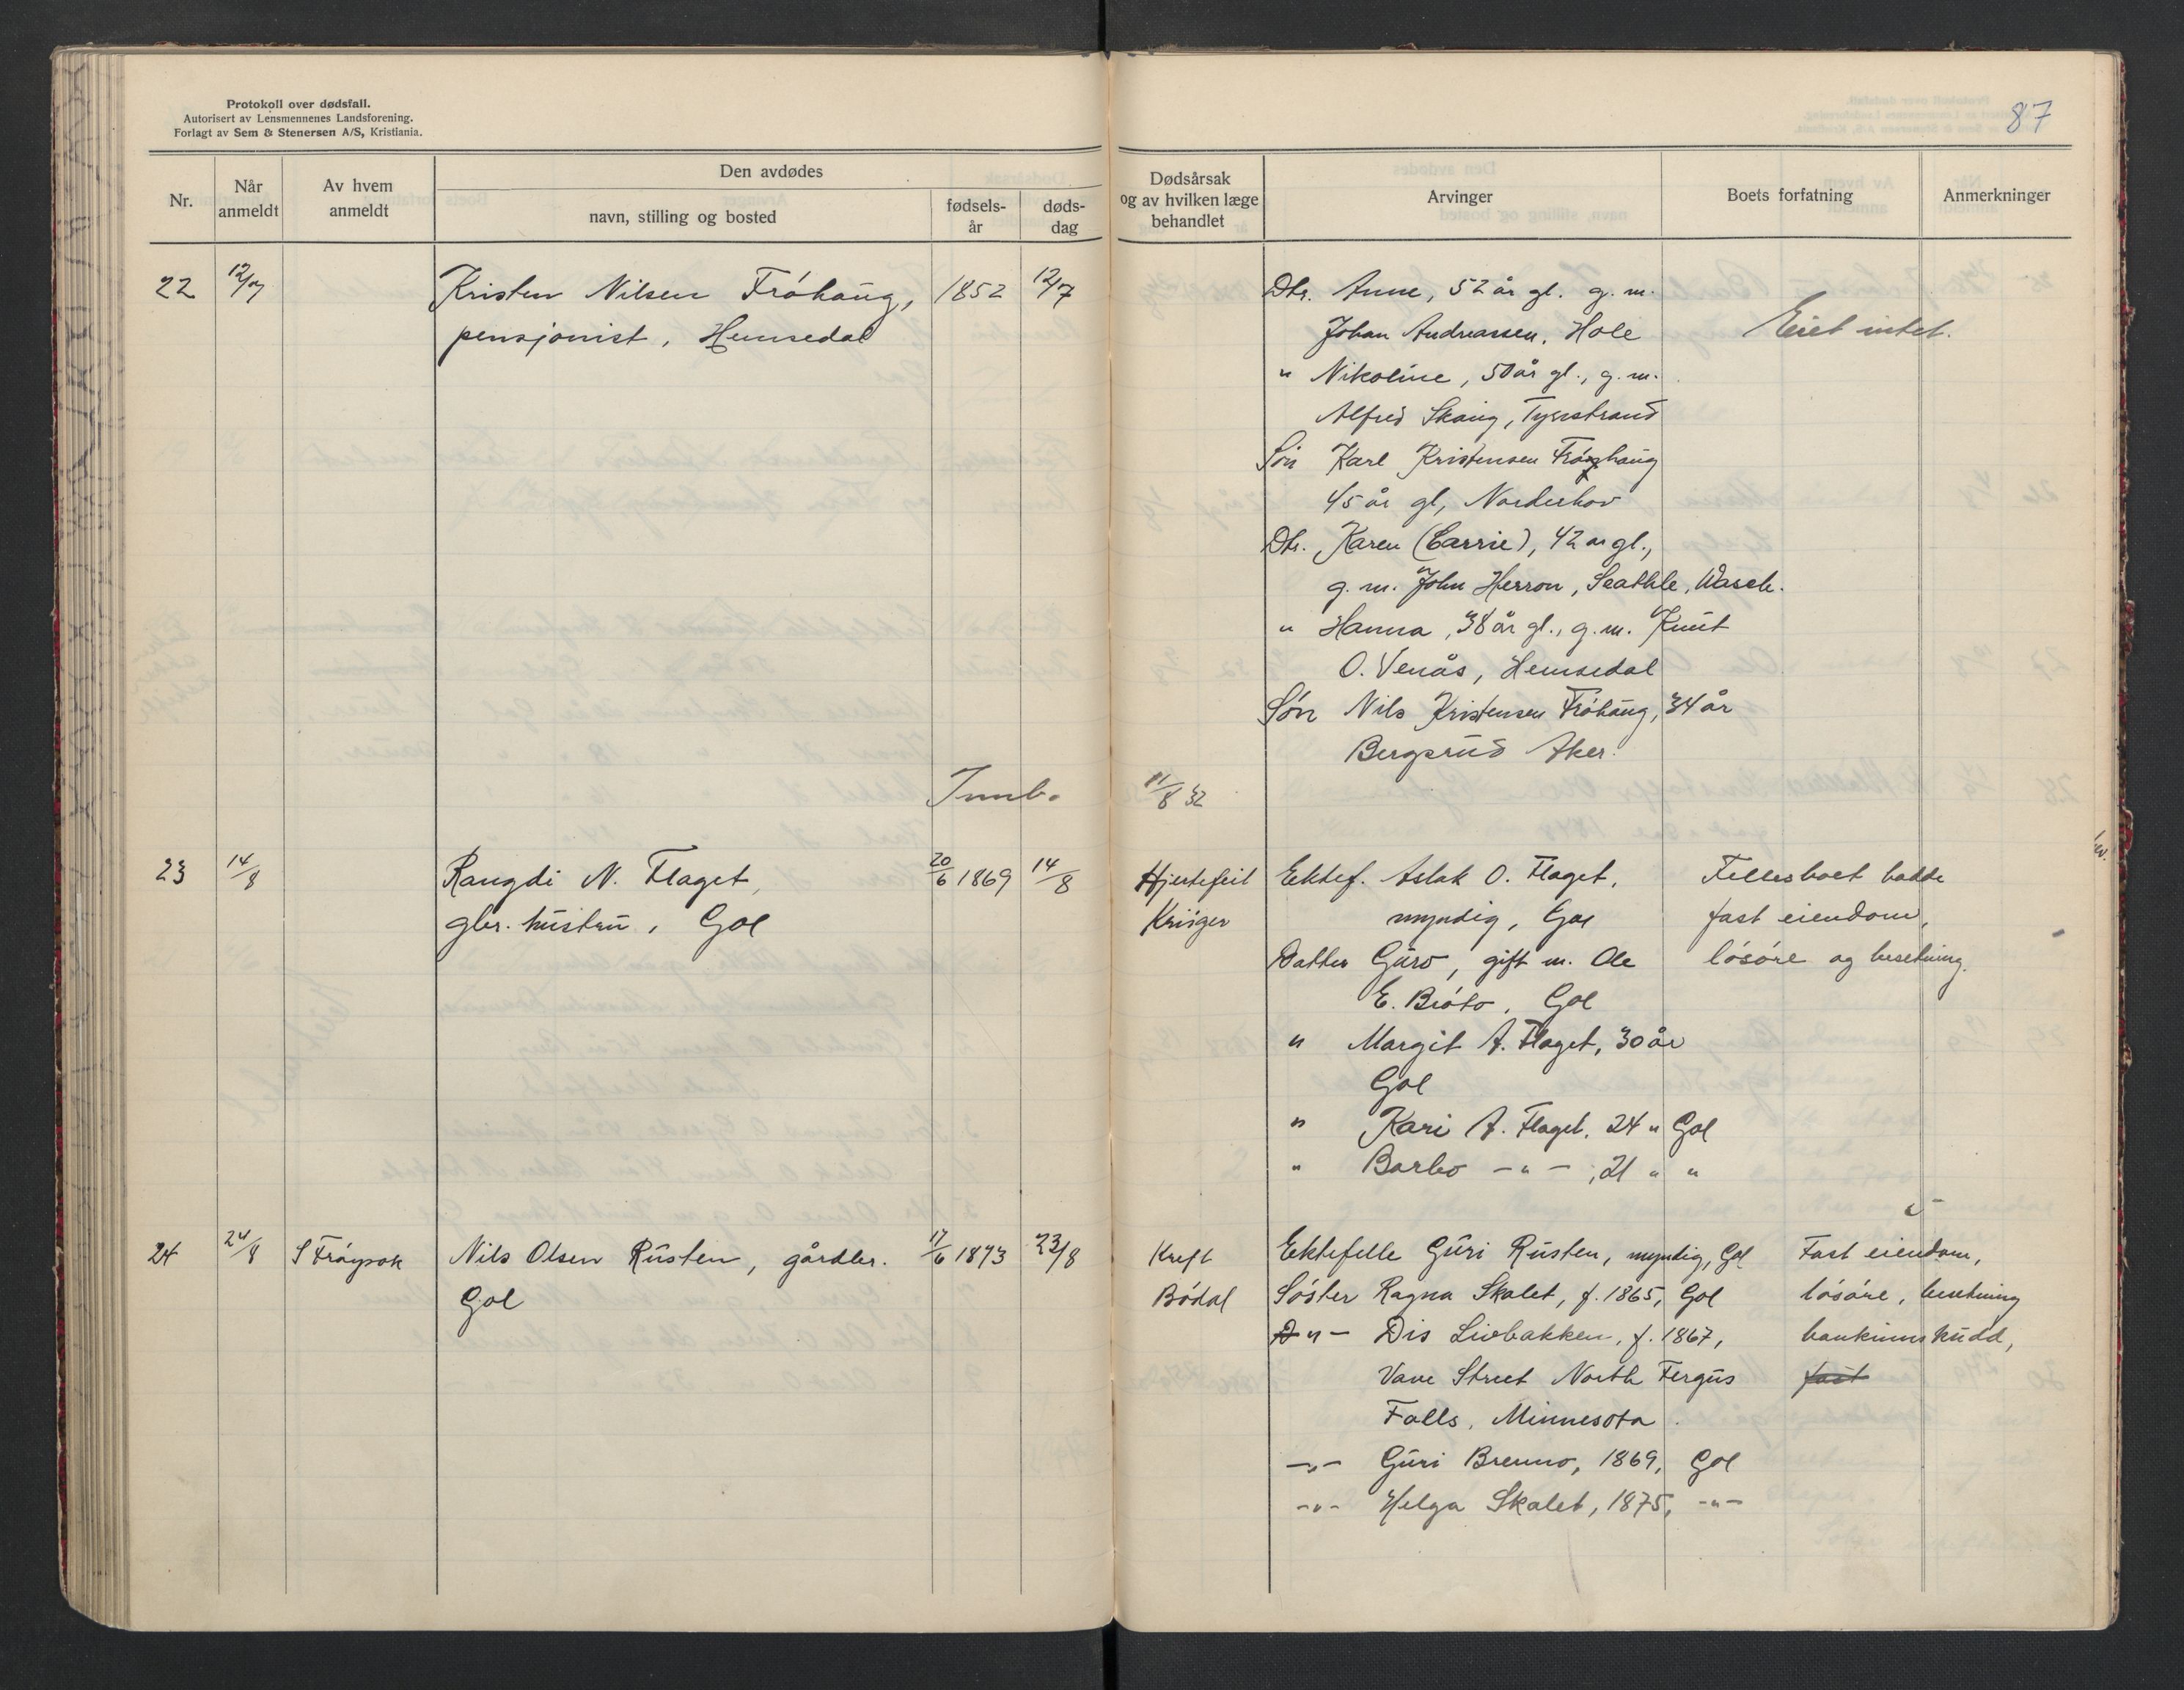 Protokoll over dødsfall.
Autorisert av Lensmennenes Landsforening.
Forlagt av Sem & Stenersen A/S, Kristiania.
87
Nr.
Når anmeldt
Av hvem anmeldt
Den avdødes
navn, stilling og bosted
fødsels-år
døds-dag
Dødsårsak og av hvilken læge behandlet
Arvinger
Boets forfatning
Anmerkninger
22 12/7 Kristen Nilsen Fröhaug, 1852 12/7
pensjonist, Hemsedal
Dtr. Anne, 52 år gl. g. m.
Johan Andreassen, Hole
Eiet intet.
" Nikoline, 50 år gl., g. m.
Alfred Skaug, Tyristrand
Søn Karl Kristensen Fröhaug
45 år gl, Norderhov
Dtr. Karen (Carrie), 42 år gl.,
g. m. John Herron, Seattle, Wasch.
" Hanna, 38 år gl., g. m. Knut
O. Venås, Hemsedal
Søn Nils Kristensen Fröhaug, 34 år
Bergsrud Aker.
Innb. 11/8 32
23 14/8 Rangdi N. Flaget, 20/6 1869 14/8 Hjertefeil Ektef. Aslak O. Flaget, Fellesboet hadde
gbr. hustru, Gol Krüger myndig, Gol fast eiendom,
Datter Guro, gift m. Ole lösöre og besetning.
E. Bröto, Gol
" Margit A. Flaget, 30 år
Gol
" Kari A. Flaget, 24 " Gol
" Barbo -"-, 21 " "
24 24/8 S Fröysok Nils Olsen Rusten, gårdbr. 17/6 1873 23/8 Kreft Ektefelle Guri Rusten, myndig, Gol Fast eiendom,
Gol Bödal Söster Ragna Skalet, f. 1865, Gol lösöre, besetning
-"- Dis Livbakken, f. 1867, bankinnskudd,
Vane Street North Fergus fast
Falls, Minnesota.
-"- Guri Brenno, 1869, Gol
-"- Helga Skalet, 1875, -"-